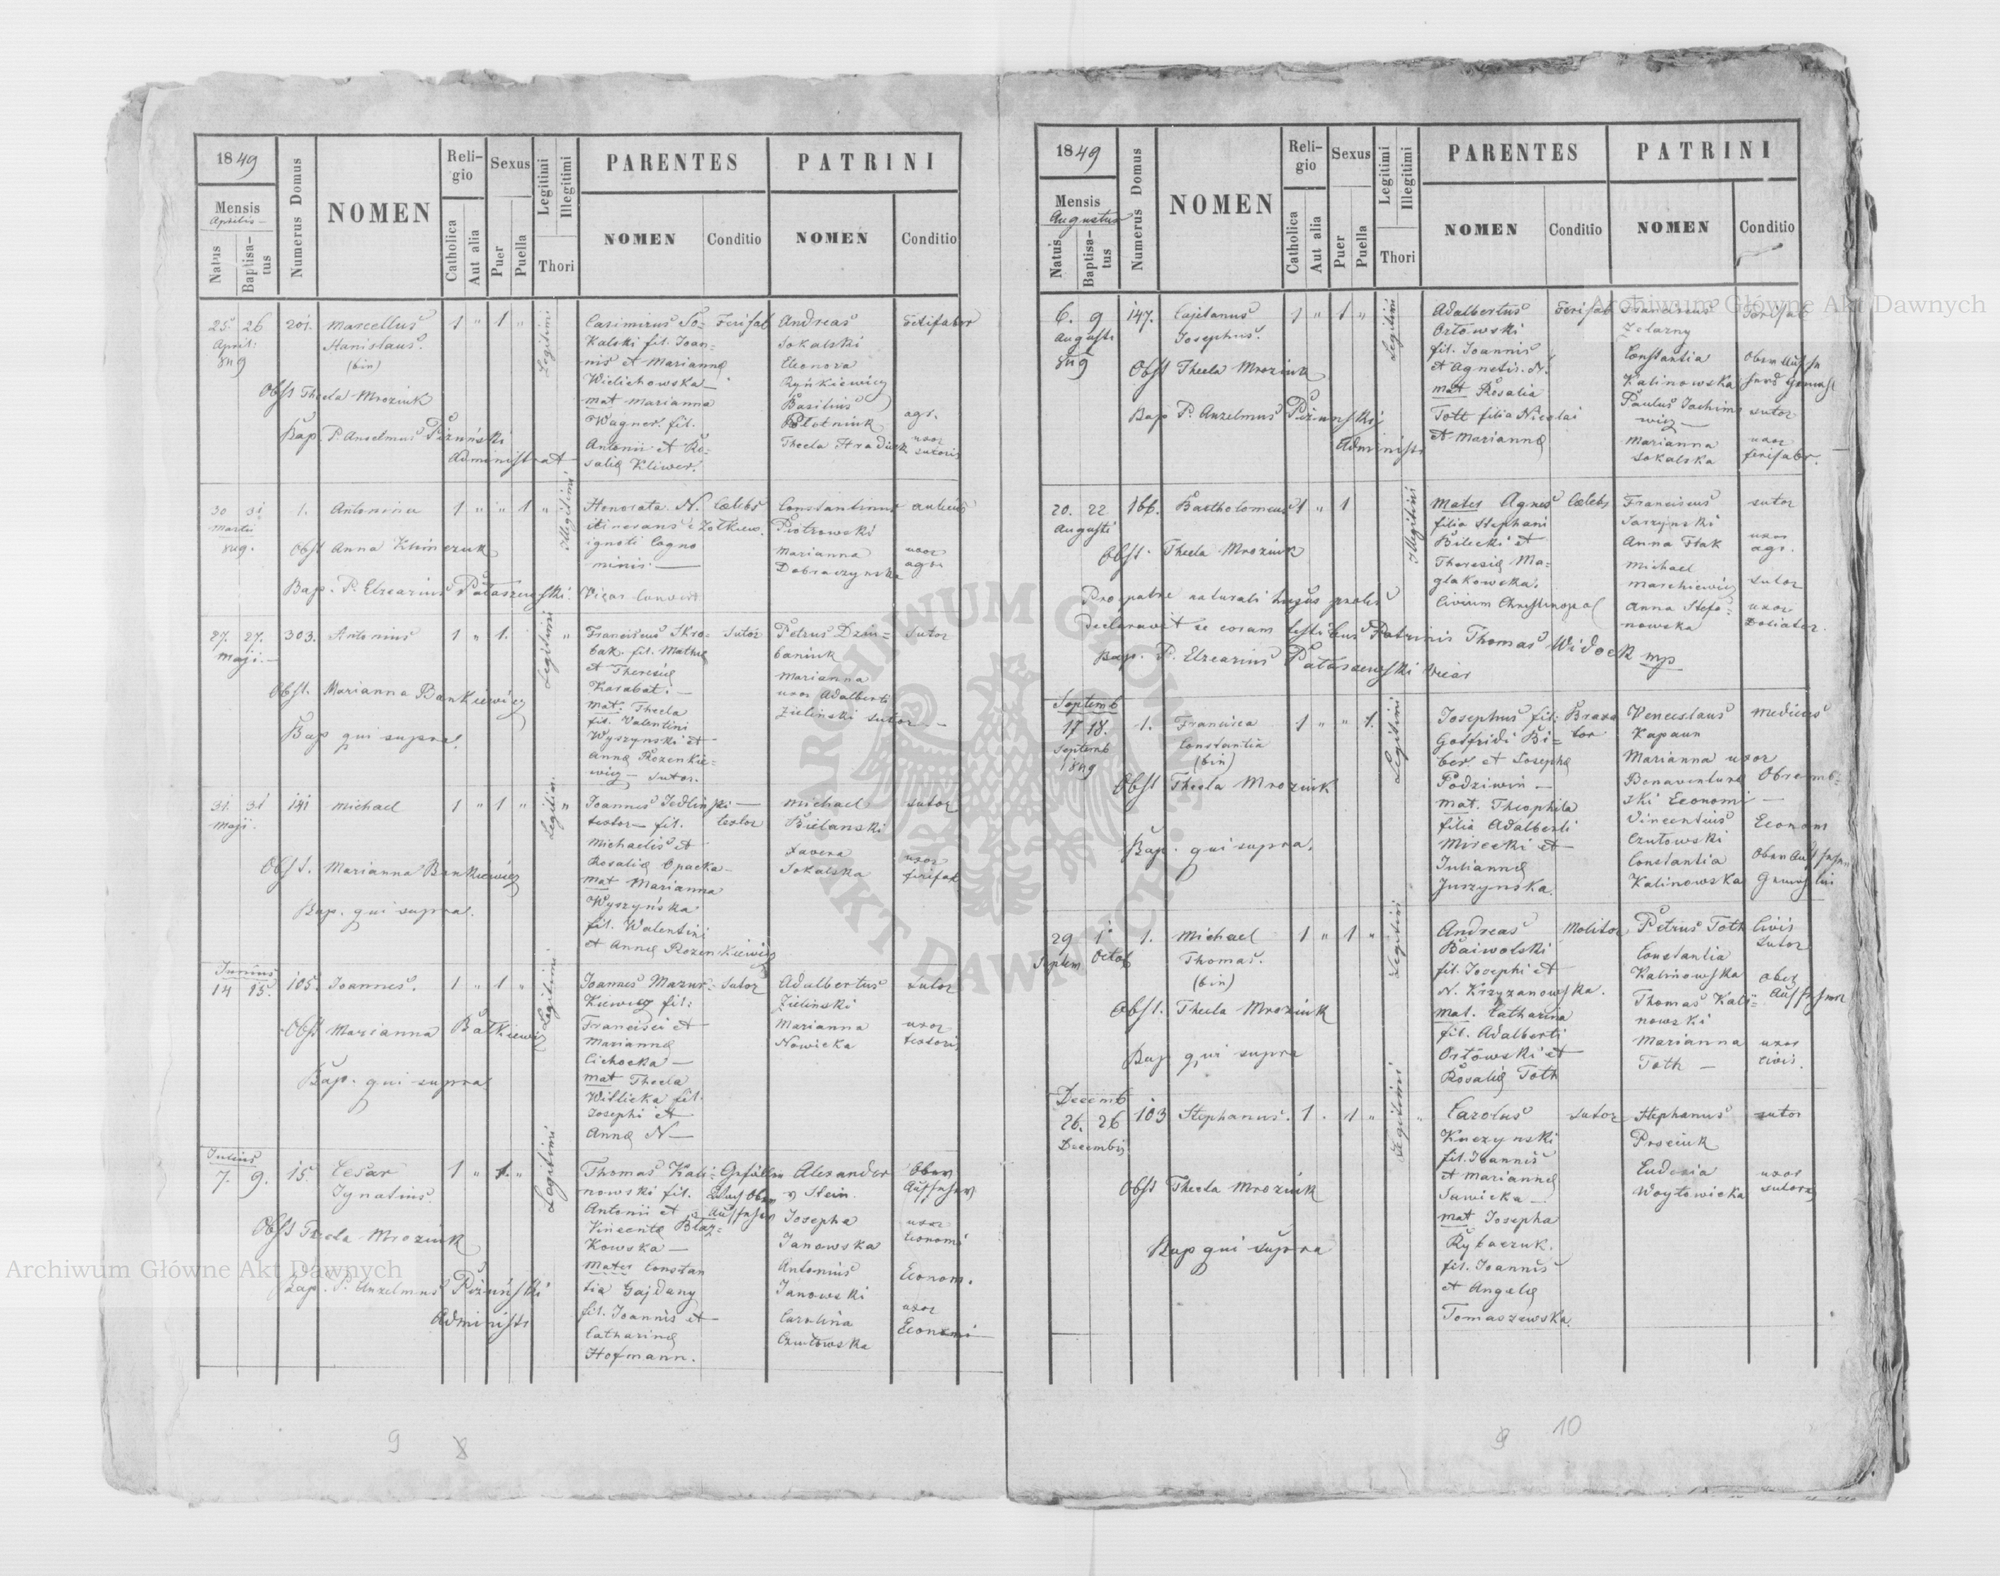 1849
Mensis
Aprilis
Natus
Baptisatus
Numerus Domus
NOMEN
Religio
Catholica
Aut alia
Sexus
Puer
Puella
Legitimi
Illegitimi
Thori
PARENTES
NOMEN
Conditio
PATRINI
NOMEN
Conditio
25. 26 201. Marcellus 1 " 1 "
April:
849
Stanislaus.
(bin)
Obst Thecla Mroziuk
Bap P. Anselmus Pizuński
Administrat
Legitimi
Casimirus So-
kalski fil. Joan-
nis et Mariannę
Wielichowska
mat Marianna
Wagner fil.
Antonii et Ro-
salię Kliwer.
Ferifab
Andreas
Sokalski
Eleonora
Ryńkiewicz
Basilius
Płotniuk
Thecla Hradiuk
agr.
uxor
sutoris
30 31 1. Antonina 1 " " 1 "
Martii
849.
Obst Anna Klimczuk
Bap. P. Elzearius Pałaszewski Vicar Convent
Illegitimi
Honorata N.
itinerans e Zołkiew.
ignoti Cogno
minis.
Cælebs
Constantinus
Piotrowski
Marianna
Dobraczynska
uxor
agr.
27. 27. 303. Antonius 1 " 1.
Maji.
Obst. Marianna Bankiewicz
Bap qui supra.
Legitimi
Franciscus Skro-
bak. fil. Mathię
et Theresię
Karabat.
mat: Thecla
fil. Valentini
Wyszynski et
Annę Rozenkie-
wicz — Sutor.
Sutor
Petrus Dziu-
baniuk
Marianna
uxor Adalberti
Zieliński sutor
Sutor
31. 31 141 Michael 1 " 1 " "
Maji.
Obst. Marianna Bankiewicz
Bap. qui supra.
Legitimi
Joannes Jedliński —
textor — fil. textor
Michaelis et
Rosalię Opacka
mat Marianna
Wyszyńska
fil. Walentini
et Annę Rozenkiewicz
Michael
Bielanski
Xavera
Sokalska
sutor
uxor
ferifab
Junius
14 15. 105. Joannes. 1 " 1 "
Obst Marianna Bałkiewicz
Bap. qui supra
Legitimi
Joannes Mazur-
kiewicz fil:
Francisci et
Mariannę
Cichocka —
mat Thecla
Witlicka fil.
Josephi et
Annę N —
Sutor
Adalbertus
Zieliński
Marianna
Nowicka
sutor
uxor
textoris
Julius
7. 9. 15. Cesar 1 " 1. "
Ignatius.
Obst Thecla Mroziuk
Bap. P. Anzelmus Pizuński
Administr
Legitimi
Thomas Kali-
nowski fil.
Antonii et
Vincentę Błaz-
kowska —
mater Constan
tia Gajdany
fil. Joannis et
Catharinę
Hofmann.
Alexander
v Stein.
Josepha
Janowska
Antonius
Janowski
Carolina
Czułowska
Ober
Aufseher
uxor
Economi
Econom.
uxor
Economi
9 8
1849
Mensis
Augustus
Natus
Baptisatus
Numerus Domus
NOMEN
Religio
Catholica
Aut alia
Sexus
Puer
Puella
Legitimi
Illegitimi
Thori
PARENTES
NOMEN
Conditio
PATRINI
NOMEN
Conditio
6. 9 147. Cajetanus 1 " 1 "
Augusti
849
Josephus.
Obst Thecla Mroziuk
Bap P. Anzelmus Pizunski
Administr
Legitimi
Adalbertus
Orłowski
fil. Joannis
et Agnetis. N.
mat Rosalia
Tott filia Nicolai
et Mariannę
Ferifab
Franciscus
Zelazny
Constantia
Kalinowska
Paulus Jachimo
wicz
Marianna
Sokalska
Ferifab
sutor
uxor
ferifabr.
20. 22 166. Bartholomeus 1 " 1
Augusti
Obst. Thecla Mroziuk
Pro patre naturali hujus prolis
declaravit se coram testibus Patrinis Thomas Widock mp
Bap. P. Elzearius Pałaszewski vicar
Illegitimi
Mater Agnes
filia Stephani
Bilecki et
Theresię Ma-
glakowska.
Civium Christinopol
Cælebs
Franciscus
Sarzynski
Anna Ftak
Michael
Marchiewicz
Anna Stefa-
nowska
sutor
uxor
agr.
sutor
uxor
Septemb
17 18. 1. Francisca 1 " " 1.
Septemb
1849
Constantia
(bin)
Obst Thecla Mroziuk
Bap. qui supra.
Legitimi
Josephus fil:
Gotfridi Bi-
ber et Josephę
Podziwin —
mat. Theophila
filia Adalberti
Mirecki et
Juliannę
Jurzynska.
Braxa
tor
Venceslaus
Kapaun
Marianna uxor
Bonaventurę Obremb-
ski Economi —
Vincentius
Czułowski
Constantia
Kalinowska
Medicus
Econom
29 1 1. Michael 1 " 1 "
Septem Octob
Thomas.
(bin)
Obst. Thecla Mroziuk
Bap qui supra
Legitimi
Andreas
Baiwolski
fil. Josephi et
N. Krzyzanowska.
mat. Catharina
fil. Adalberti
Orłowski et
Rosalię Toth
Molitor
Petrus Toth
Constantia
Kalinowska
Thomas Kali-
nowski
Marianna
Toth —
Civis
Sutor
uxor
civis.
Decemb
26. 26 103 Stephanus. 1. 1 "
Decembris
Obst Thecla Mroziuk
Bap qui supra
Legitimi
Carolus
Kuczynski
fil. Joannis
et Mariannę
Sawicka —
mat Josepha
Rybaczuk.
fil. Joannis
et Angelę
Tomaszewska.
sutor
Stephanus
Prociuk
Eudoxia
Woytowicka
sutor
uxor
sutoris
9 10
Archiwum Główne Akt Dawnych
Archiwum Główne Akt Dawnych
ARCHIWUM GŁÓWNE AKT DAWNYCH